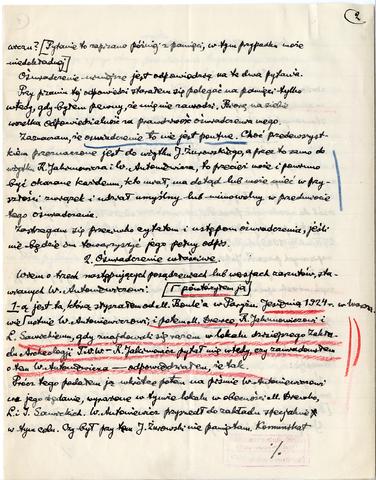 2
wczam? [Pytanie to zapisano później z pamięci, w tym przypadku może
niedokładnej]
Oświadczenie niniejsze jest odpowiedzią na te dwa pytania.
Przy pisaniu tej odpowiedzi starałem się polegać na pamięci tylko
wtedy, gdy byłem pewny, że mię nie zawodzi. Biorę na siebie
wszelką odpowiedzialność za prawdziwość oświadczenia mego.
Zaznaczam, że oświadczenie to nie jest poufne. Choć przedewszyst-
kiem przeznaczone jest do użytku J. Żurowskiego, a prócz tego samo do
użytku R. Jakimowicza i W. Antoniewicza, to przecież może i powinno
być okazane każdemu, kto miał, ma dotąd lub może mieć w przy-
szłości związek i udział umyślny lub mimowolny w przedmiocie
tego oświadczenia.
Zastrzegam się przeciwko cytatom i ustępom oświadczenia, jeśli
nie będzie im towarzyszyć jego pełny odpis.
2. Oświadczenie właściwe.
Wiem o trzech następujących posądzeniach lub wersjach zarzutów, sta-
wianych W. Antoniewiczowi: [powtórzyłem ją]
I-a jest ta, którą słyszałem od M. Boule'a w Paryżu Jesienią 1924 r.
ustnie W. Antoniewiczowi i potem M. Drewce, R. Jakimowiczowi i
L. Sawickiemu, gdy znajdowali się razem w lokalu dzisiejszego Zakła-
du Archeologji T.N.W. — R. Jakimowicz pytał mię wtedy, czy zawiadomiłem
o tem W. Antoniewicza — odpowiedziałem, że tak.
Prócz tego podałem ją wkrótce potem na piśmie W. Antoniewiczowi
na jego żądanie, wyrażone w tymże lokalu w obecności M. Drewko,
L. i J. Sawickich. W. Antoniewicz przyszedł do zakładu specjalnie
w tym celu. Czy był przy tem J. Żurowski nie pamiętam. Komunikat
./.